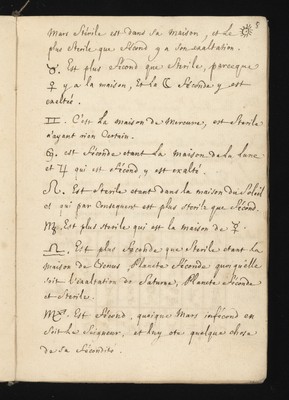 5
Mars Stérile est dans sa maison, et le ☼
plus Sterile que Fécond y a son exaltation.
♉. Est plus Fécond que Sterile, parceque
♀ y a la maison, Et la ☾ Féconde y est
exaltée.
♊. C'est la maison de Mercure, est Sterile
n'ayant rien Certain.
♋. est Féconde etant la Maison de la lune
et ♃ qui est Fécond y est exalté.
♌. Est Sterile etant dans la maison du Soleil
et qui par Consequent est plus sterile que Fécond.
♍. Est plus sterile qui est la maison de ☿.
♎. Est plus Féconde que Sterile etant la
maison de Venus, Planete Féconde quoy qu'elle
soit l'exaltation de Saturne, Planete Féconde
et Sterile.
♏. Est Fécond, quoique Mars infécond en
soit le Seigneur, et luy ote quelque chose
de sa Fécondité.